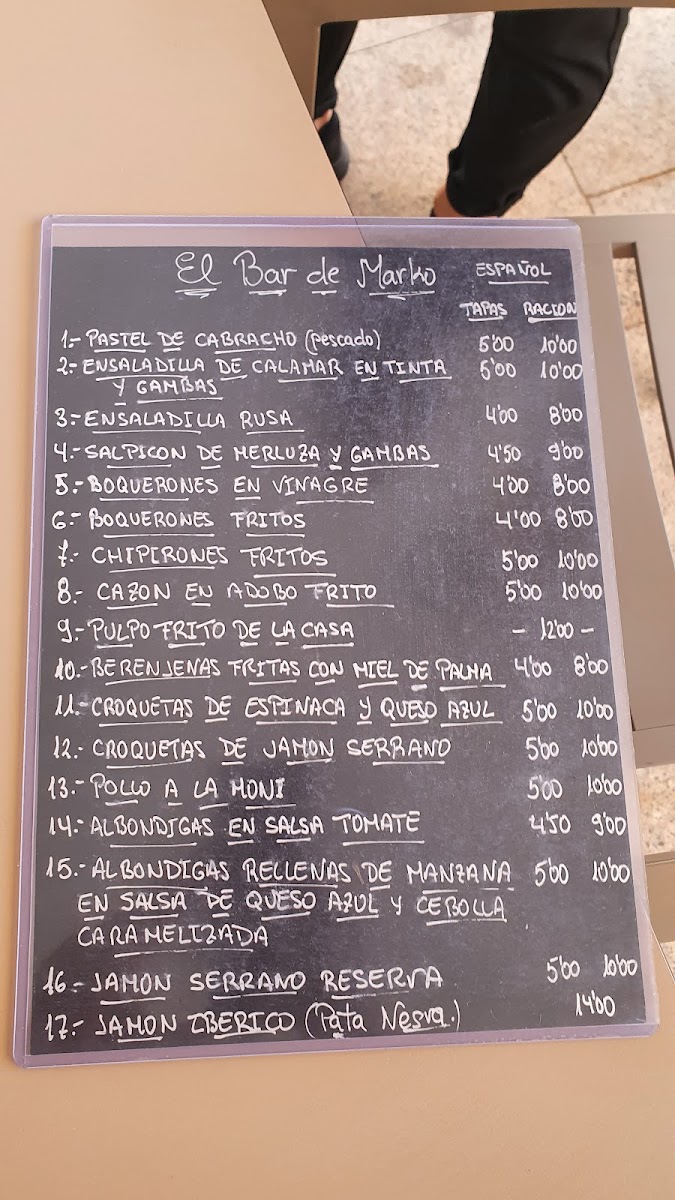 El Bar de Marko ESPAÑOL
TAPAS RACION
1.- PASTEL DE CABRACHO (pescado) 5'00 10'00
2.- ENSALADILLA DE CALAMAR EN TINTA 5'00 10'00
Y GAMBAS
3.- ENSALADILLA RUSA 4'00 8'00
4.- SALPICON DE MERLUZA Y GAMBAS 4'50 9'00
5.- BOQUERONES EN VINAGRE 4'00 8'00
6.- BOQUERONES FRITOS 4'00 8'00
7.- CHIPIRONES FRITOS 5'00 10'00
8.- CAZON EN ADOBO FRITO 5'00 10'00
9.- PULPO FRITO DE LA CASA - 12'00 -
10.- BERENJENAS FRITAS CON MIEL DE PALMA 4'00 8'00
11.- CROQUETAS DE ESPINACA Y QUESO AZUL 5'00 10'00
12.- CROQUETAS DE JAMON SERRANO 5'00 10'00
13.- POLLO A LA MONI 5'00 10'00
14.- ALBONDIGAS EN SALSA TOMATE 4'50 9'00
15.- ALBONDIGAS RELLENAS DE MANZANA 5'00 10'00
EN SALSA DE QUESO AZUL Y CEBOLLA
CARAMELIZADA
16.- JAMON SERRANO RESERVA 5'00 10'00
17.- JAMON IBERICO (Pata Negra.) 14'00